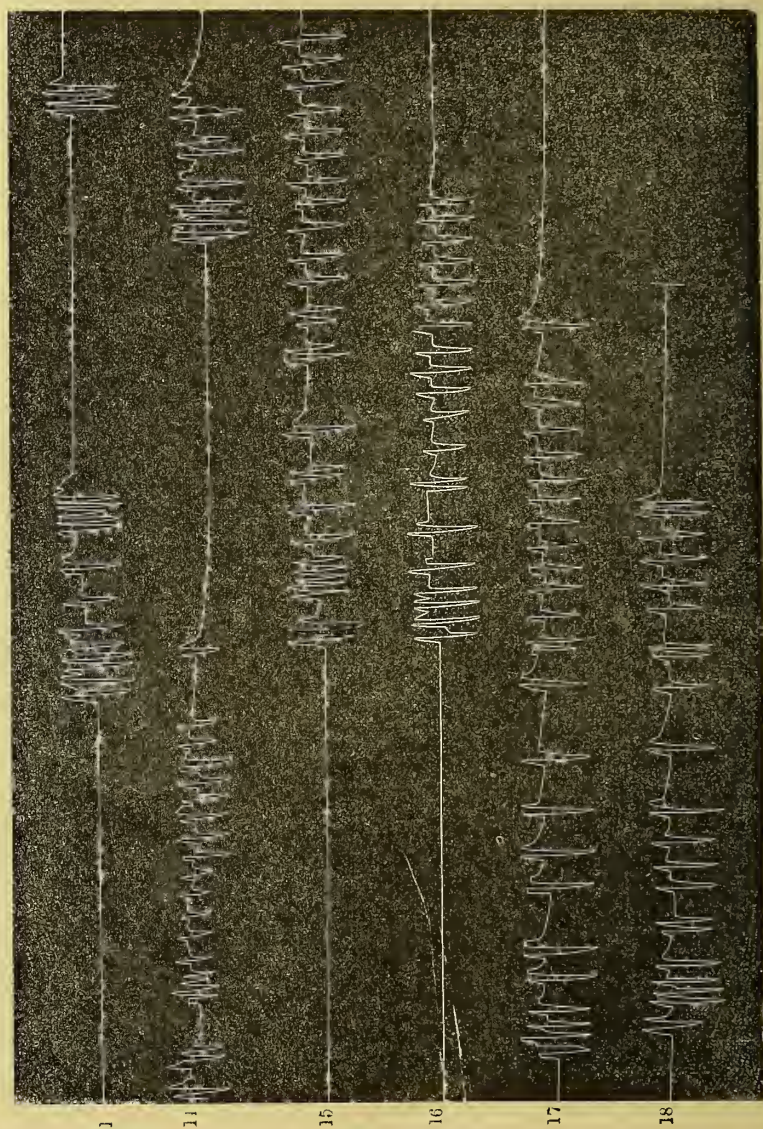 1
15
16
17
18